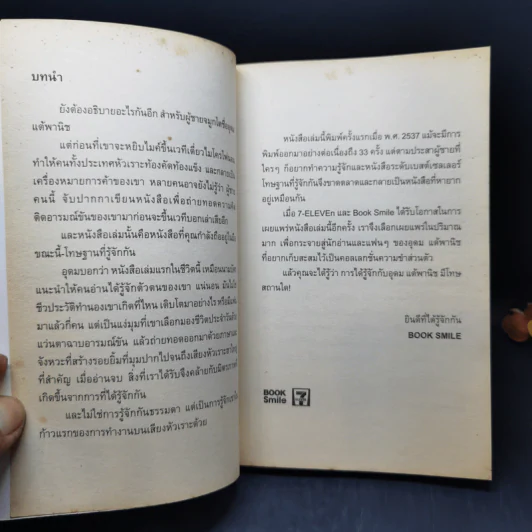 บทนำ
ยังต้องอธิบายอะไรกันอีก สำหรับผู้ชายจมูกโตชื่ออุดม
แต้พานิช
แต่ก่อนที่เขาจะหยิบไมค์ขึ้นเวทีเดี่ยวไมโครโฟน
ทำให้คนทั้งประเทศหัวเราะท้องคัดท้องแข็ง และกลายเป็น
เครื่องหมายการค้าของเขา หลายคนอาจยังไม่รู้ว่า ผู้ชาย
คนนี้ จับปากกาเขียนหนังสือเพื่อถ่ายทอดความคิด
ติดอารมณ์ขันของเขามาก่อนจะขึ้นเวทีบอกเล่าเสียอีก
และหนังสือเล่มนั้นคือหนังสือที่คุณกำลังถืออยู่ใน
ขณะนี้-โทษฐานที่รู้จักกัน
อุดมบอกว่า หนังสือเล่มแรกในชีวิตนี้ เหมือน
แนะนำให้คนอ่านได้รู้จักตัวตนของเขา แน่นอน มันไม่ใช่
ชีวประวัติทำนองเขาเกิดที่ไหน เติบโตมาอย่างไร
มาแล้วกี่คน แต่เป็นแง่มุมที่เขาเลือกมองชีวิตประจำวัน
แว่นตาฉาบอารมณ์ขัน แล้วถ่ายทอดออกมาด้วยภาษาและ
จังหวะที่สร้างรอยยิ้มที่มุมปากไปจนถึงเสียงหัวเราะ
ที่สำคัญ เมื่ออ่านจบ สิ่งที่เราได้รับจึงคล้ายกับมิตรภาพ
เกิดขึ้นจากการที่ได้รู้จักกัน
และไม่ใช่การรู้จักกันธรรมดา แต่เป็นการรู้จัก
ก้าวแรกของการทำงานบนเสียงหัวเราะด้วย
หนังสือเล่มนี้พิมพ์ครั้งแรกเมื่อ พ.ศ. 2537 แม้จะมีการ
พิมพ์ออกมาอย่างต่อเนื่องถึง 33 ครั้ง แต่ตามประสาผู้ชายที่
ใครๆ ก็อยากทำความรู้จักและหนังสือระดับเบสต์เซลเลอร์
โทษฐานที่รู้จักกันจึงขาดตลาดและกลายเป็นหนังสือที่หายาก
อยู่เหมือนกัน
เมื่อ 7-ELEVEn และ Book Smile ได้รับโอกาสในการ
เผยแพร่หนังสือเล่มนี้อีกครั้ง เราจึงเลือกเผยแพร่ในปริมาณ
มาก เพื่อกระจายสู่นักอ่านและแฟนๆ ของอุดม แต้พานิช
ที่อยากเก็บสะสมไว้เป็นคอลเลกชั่นความขำส่วนตัว
แล้วคุณจะได้รู้ว่า การได้รู้จักกับอุดม แต้พานิช มีโทษ
สถานใด!
ยินดีที่ได้รู้จักกัน
BOOK SMILE
BOOK
Smile